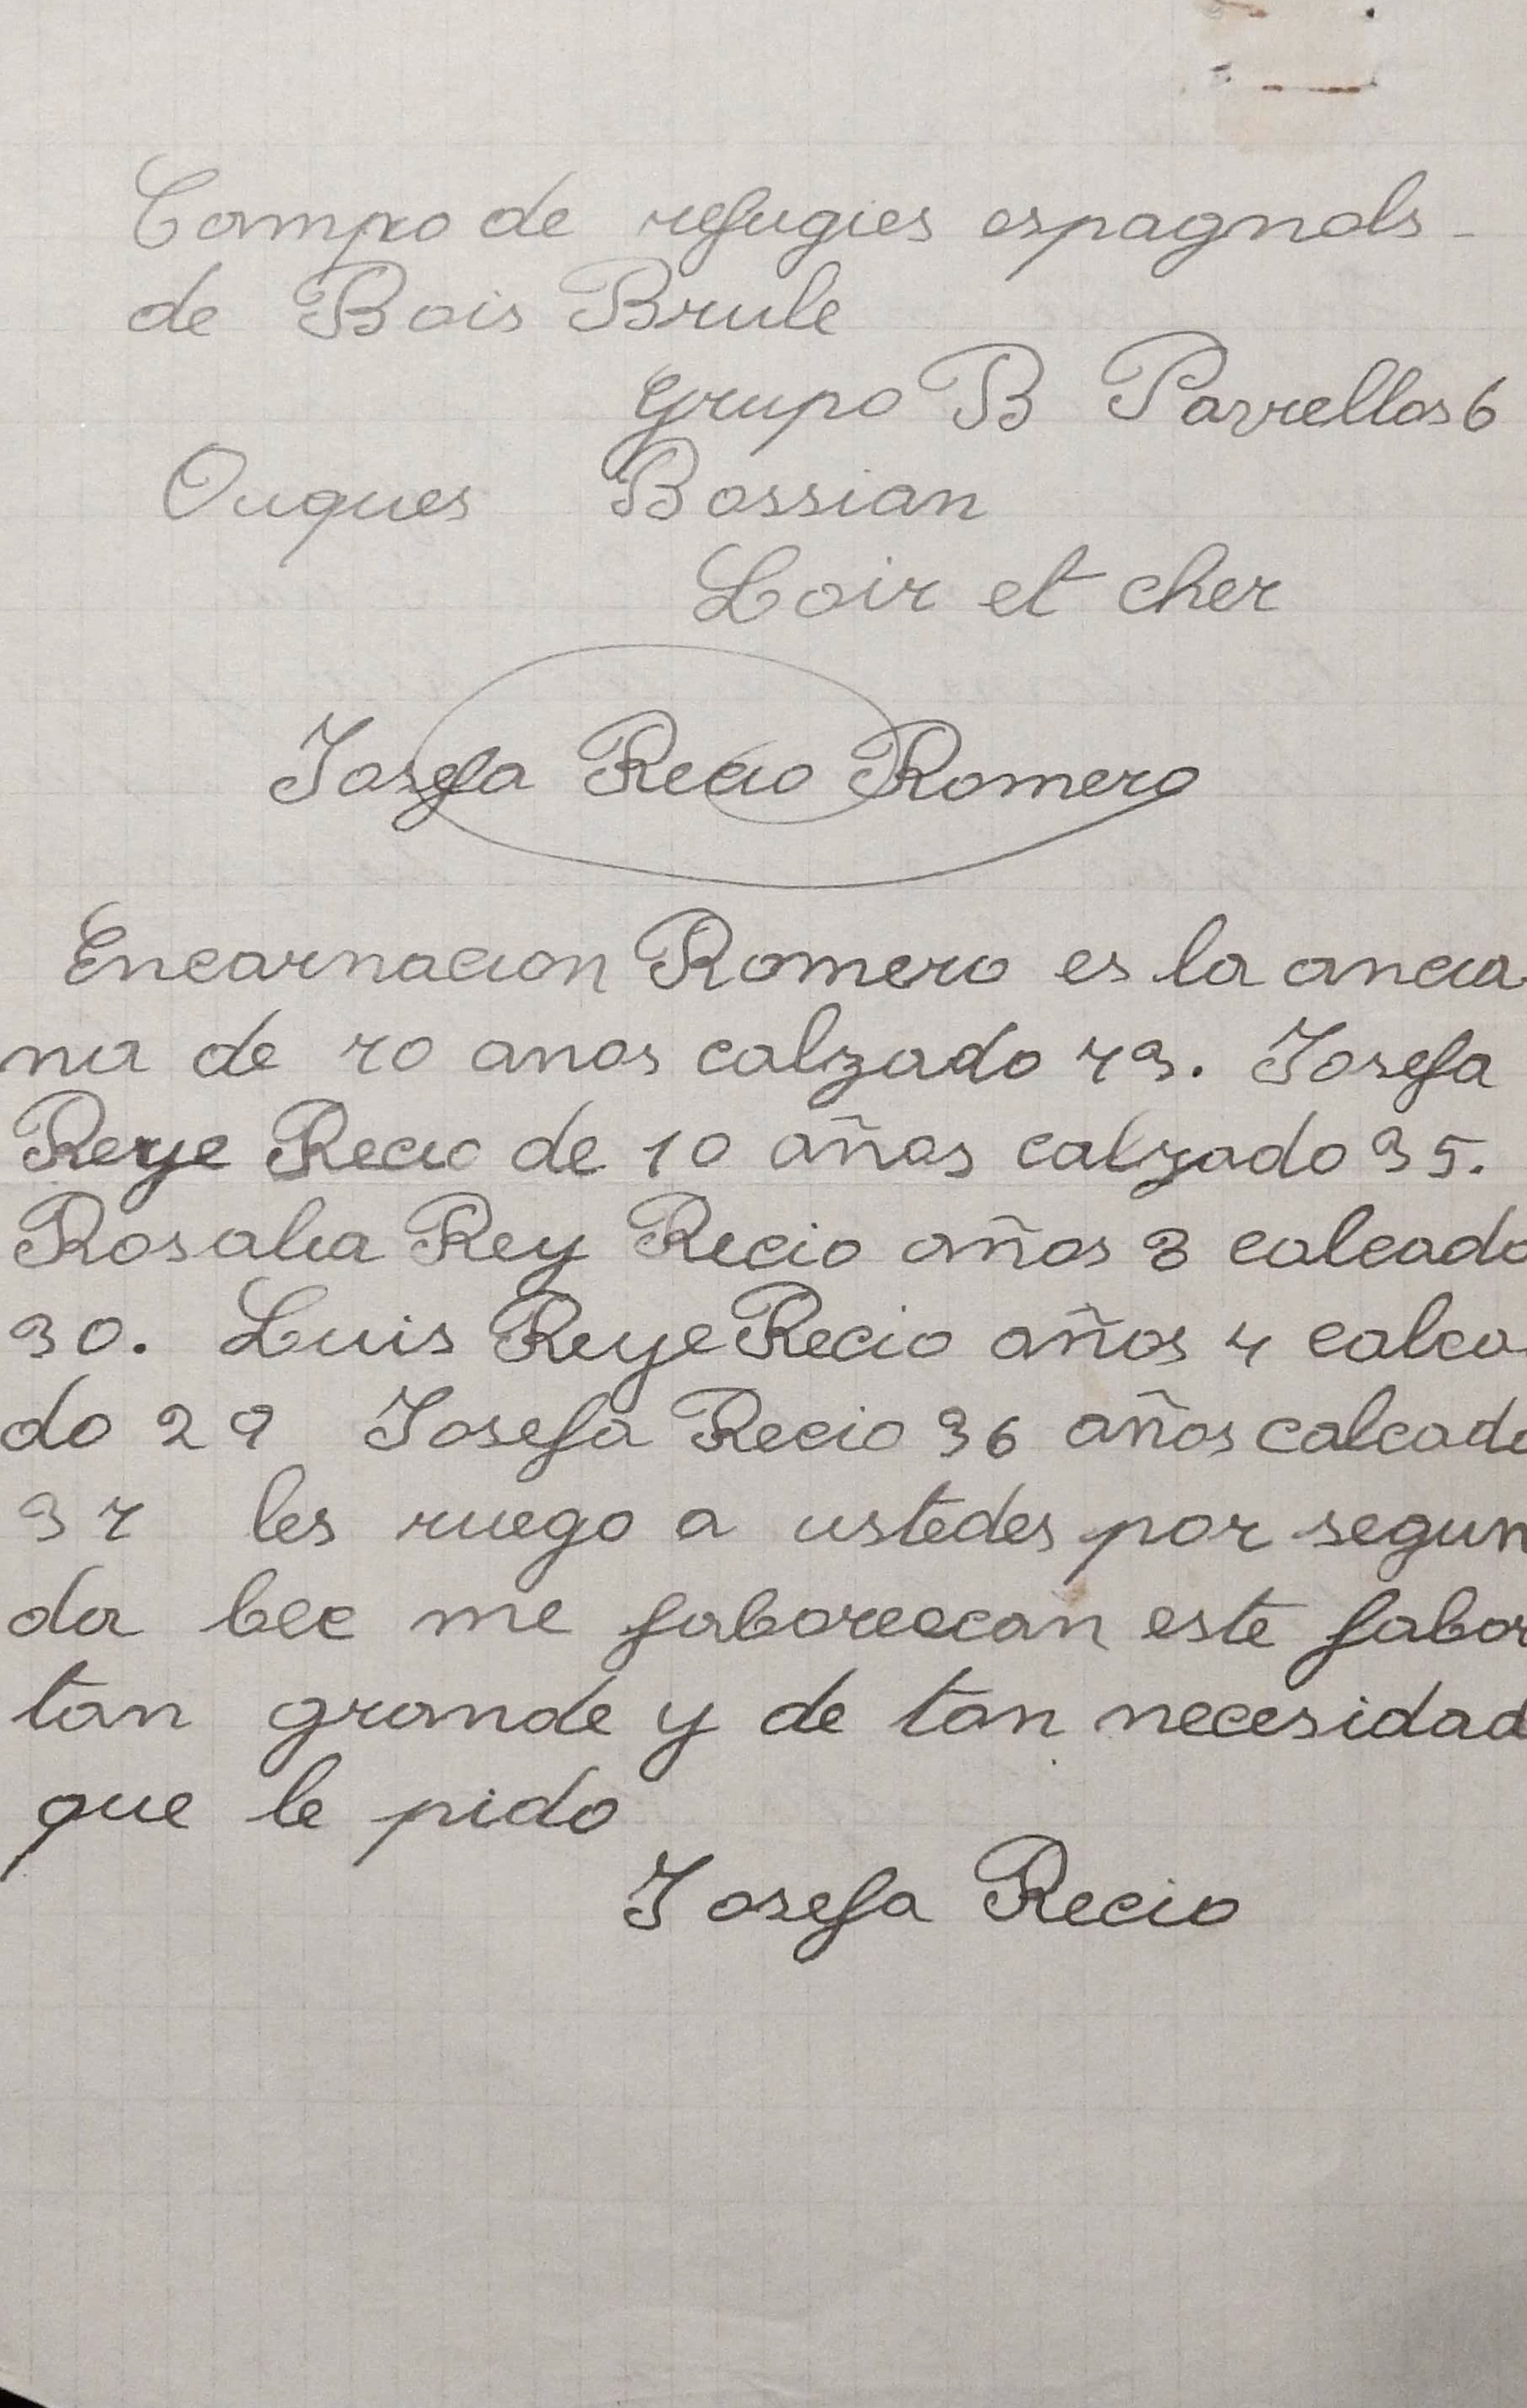 Campo de refugies espagnols -
de Bois Brule
Grupo B Pavrellos 6
Ouques Bossian
Loir et cher
Josefa Recio Romero
Encarnacion Romero es la ancia
na de 70 anos calzado 43. Josefa
Reye Recio de 10 años calzado 35.
Rosalia Rey Recio años 8 calcado
30. Luis Reye Recio años 4 calca
do 29 Josefa Recio 36 años calcado
37 les ruego a ustedes por segun
da bec me faboreecan este fabor
tan grande y de tan necesidad
que le pido
Josefa Recio